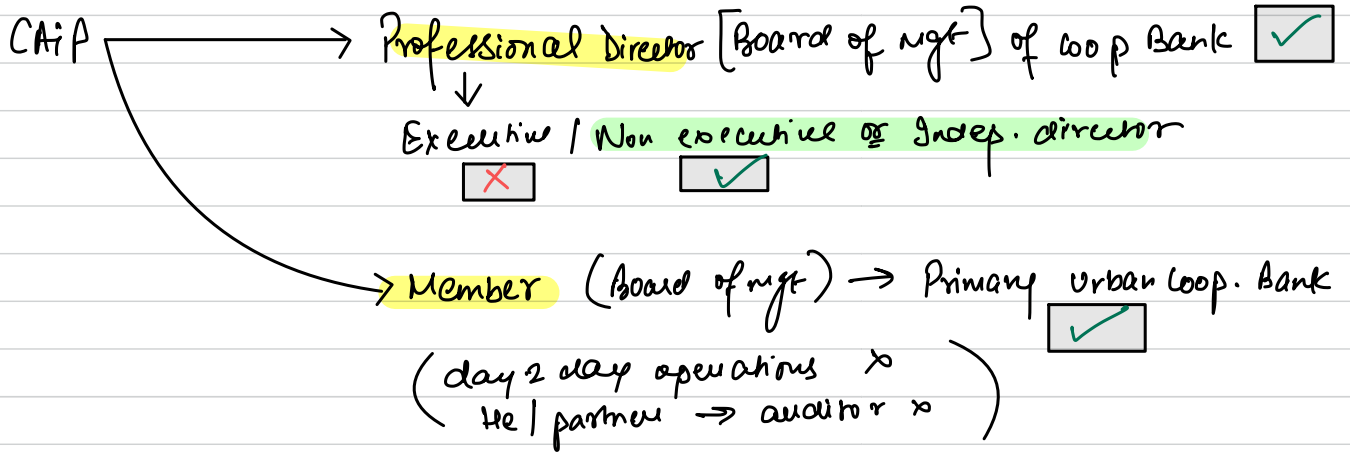 CAiP → Professional Director [Board of mgt] of coop Bank ✓
↓
Executive / Non executive or Indep. director
✗ ✓
Member (Board of mgt) → Primary urban coop. Bank
✓
(day 2 day operations x
He / partner → auditor x)